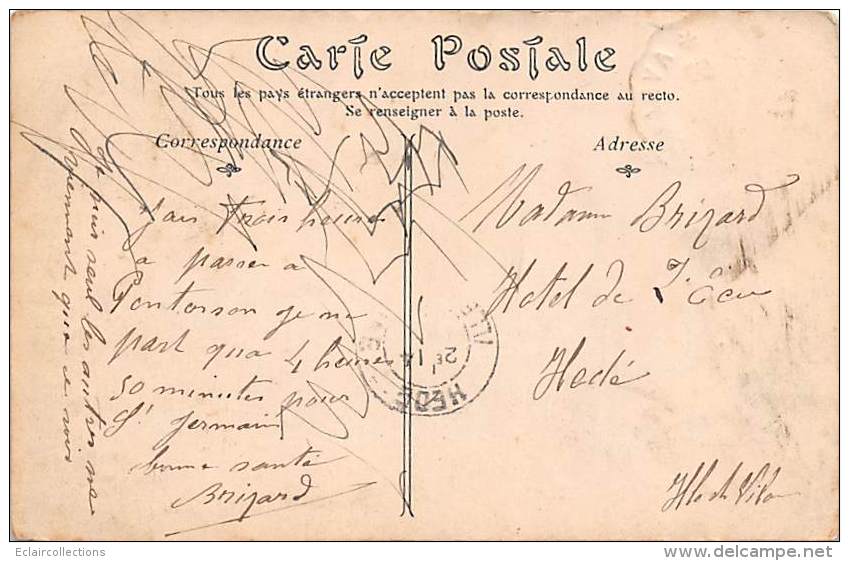 Carte Postale
Tous les pays étrangers n'acceptent pas la correspondance au recto.
Se renseigner à la poste.
Correspondance
Adresse
J'ais trois heures
a passer a
Pontorson je ne
part qua 4 heures
50 minutes pour
St Germain
bonne santé
Brizard
Je suis seul les autres ne
viennent que ce soir
Madame Brizard
Hotel de l'Ecu
Hedé
Ille et Vilaine
HEDE
Eclaircollections
delcampe.net